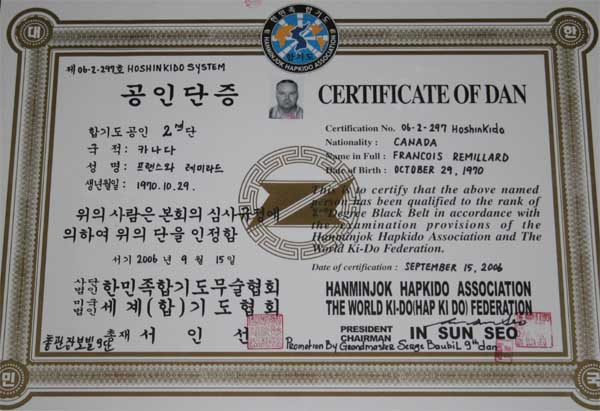 대
한
한민족 합기도
HANMINJOK HAPKIDO ASSOCIATION
합기도
제 06-2-297호 HOSHINKIDO SYSTEM
공인단증
합기도공인 2단
국 적: 카나다
성 명: 프랜스와 레미라드
생년월일: 1970.10.29.
위의 사람은 본회의 심사규정에
의하여 위의 단을 인정함
서기 2006년 9월 15일
사단법인 한민족합기도무술협회
미국법인 세계(합)기도협회
총재 서인선
CERTIFICATE OF DAN
Certification No. 06-2-297 HoshinKido
Nationality : CANADA
Name in Full : FRANCOIS REMILLARD
Date of Birth : OCTOBER 29, 1970
This is to certify that the above named
person has been qualified to the rank of
2nd Degree Black Belt in accordance with
the examination provisions of the
Hanminjok Hapkido Association and The
World Ki-Do Federation.
Date of certification : SEPTEMBER 15, 2006
HANMINJOK HAPKIDO ASSOCIATION
THE WORLD KI-DO(HAP KI DO) FEDERATION
PRESIDENT
CHAIRMAN
IN SUN SEO
Promotion By Grandmaster Serge Baubil 9th dan
민
국